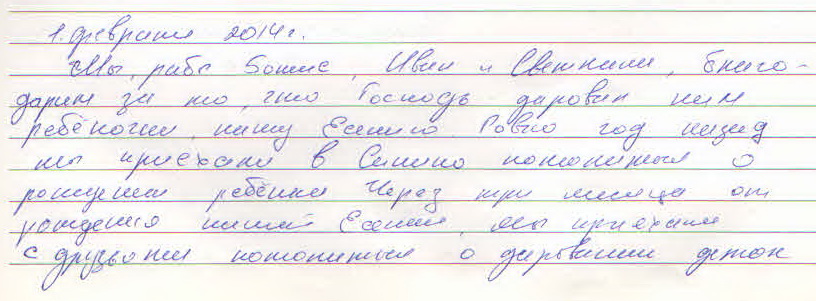 1. февраля 2014 г.
Мы, рабы Божие, Иван и Светлана, благо-
дарим за то, что Господь даровал нам
ребёночка, нашу Есению. Ровно год назад
мы приехали в Сенино помолиться о
рождении ребёнка Через три месяца от
рождения нашей Есении, мы приехали
с друзьями помолиться о даровании деток